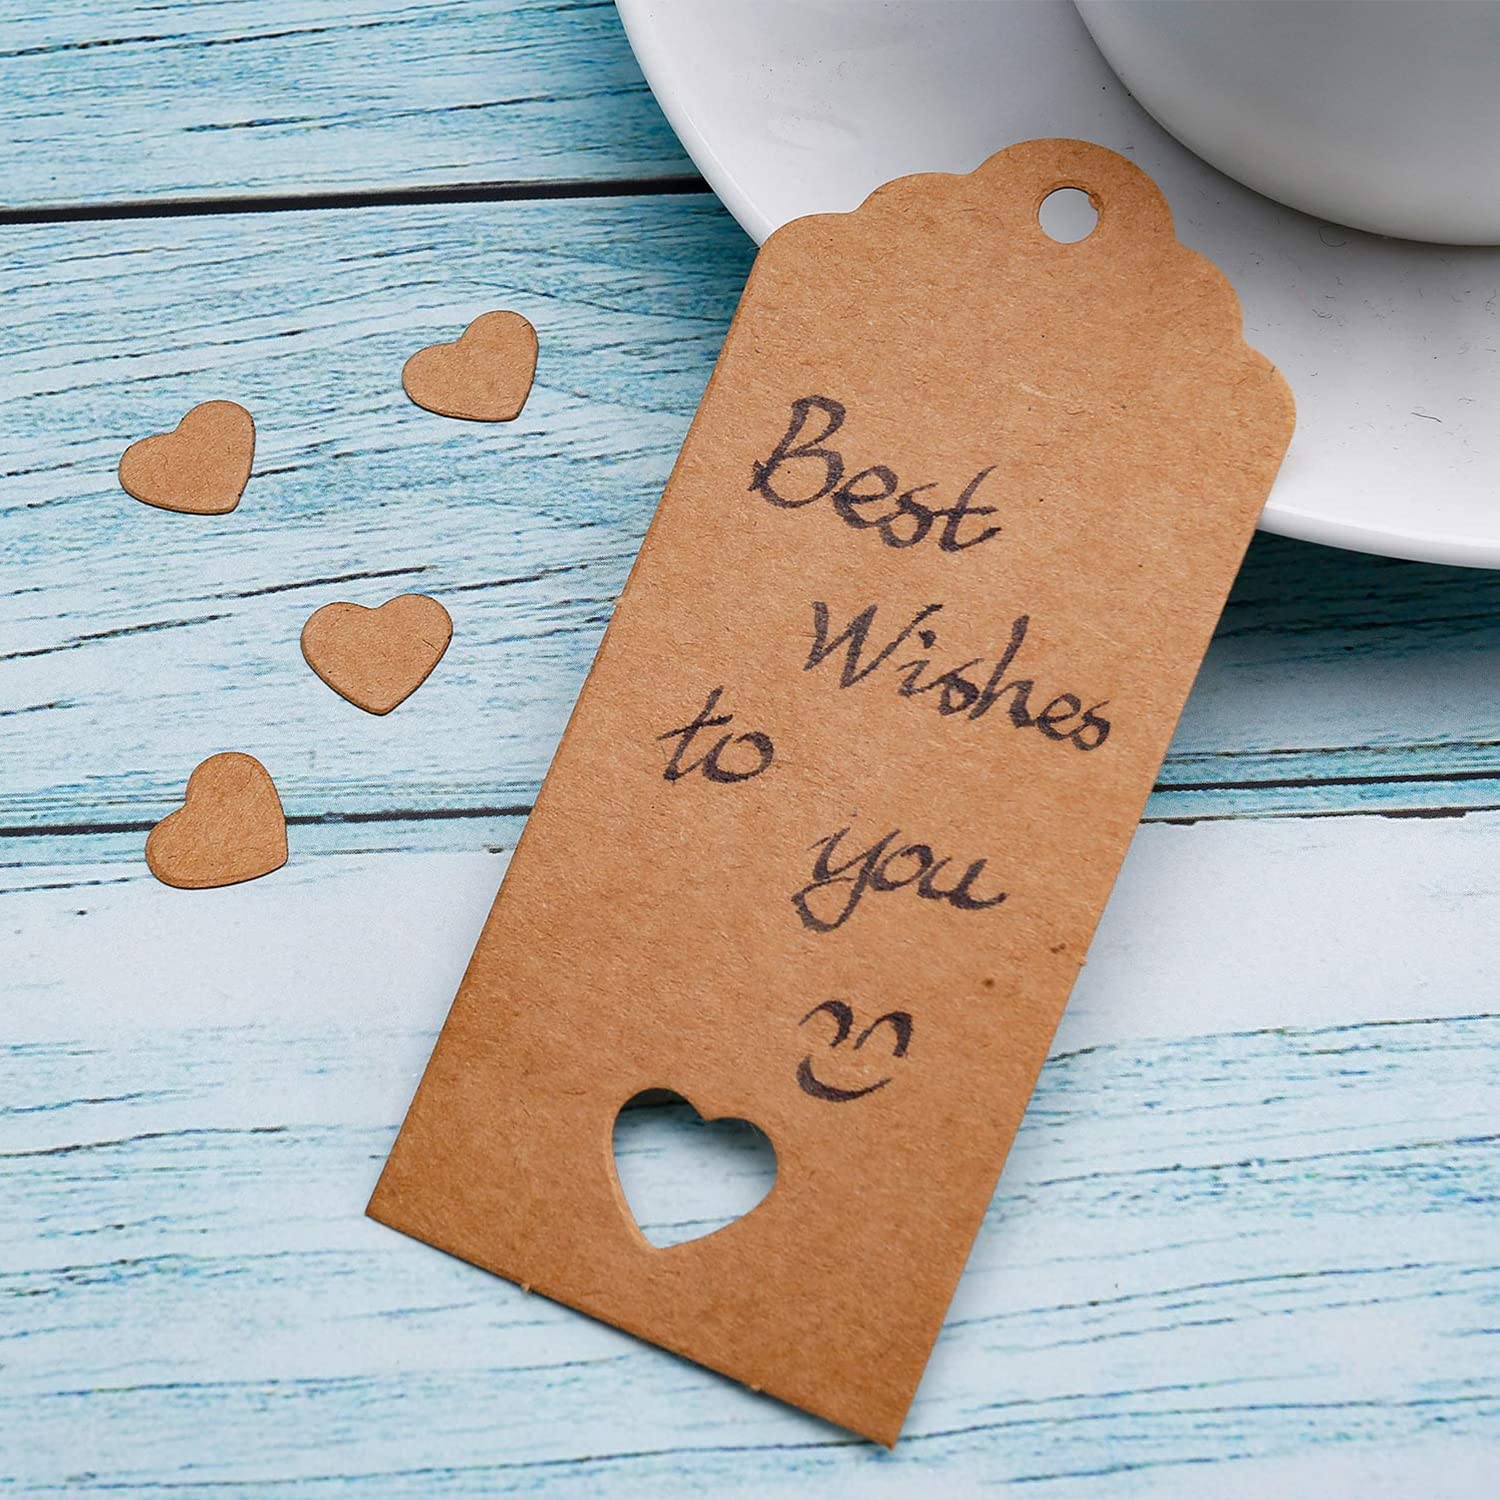 Best
Wishes
to
you